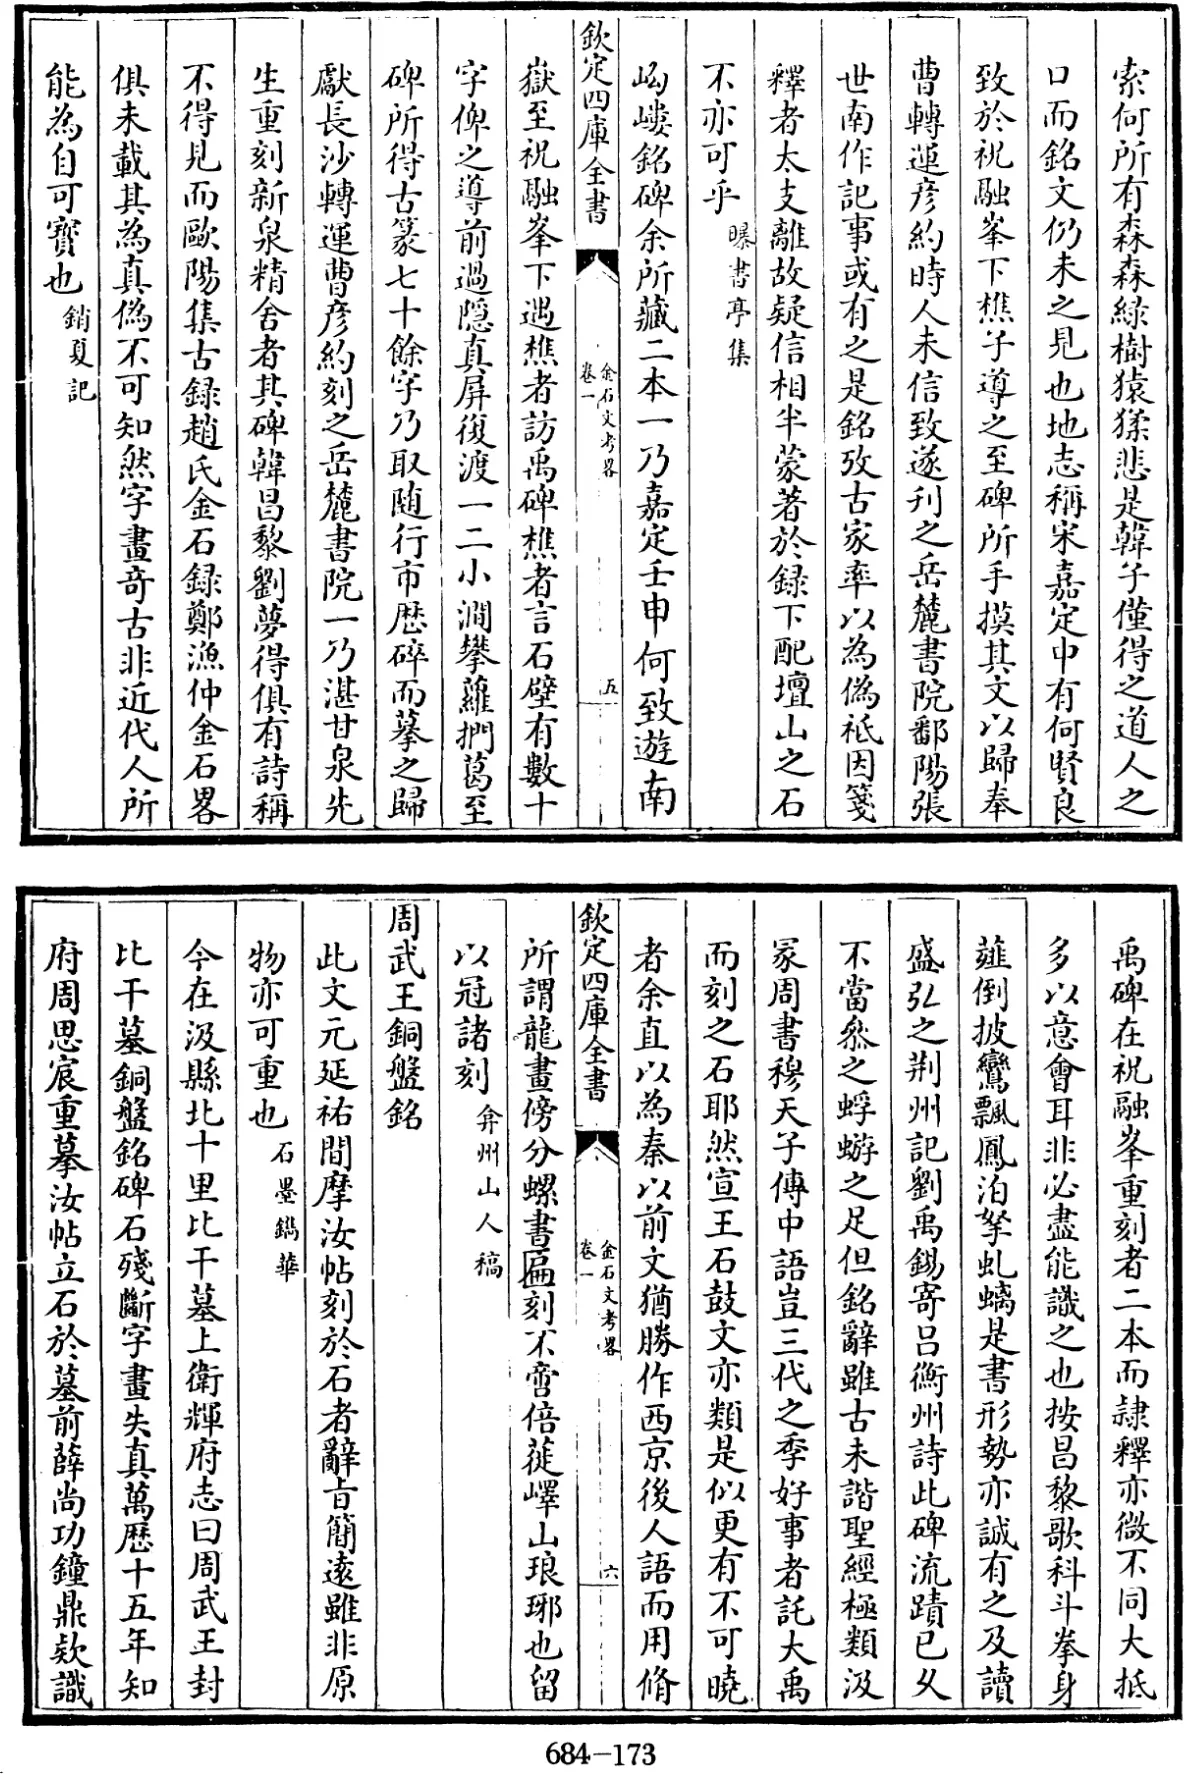 索何所有森森綠樹猿猱悲是韓子僅得之道人之
口而銘文仍未之見也地志稱宋嘉定中有何賢良
致於祝融峯下樵子導之至碑所手摸其文以歸奉
曹轉運彦約時人未信致遂刋之岳麓書院鄱陽張
世南作記事或有之是銘攷古家率以為偽祗因箋
釋者太支離故疑信相半蒙著於録下配壇山之石
不亦可乎 曝書亭集
岣嶁銘碑余所藏二本一乃嘉定壬申何致遊南
欽定四庫全書
金石文考畧
卷一
五
嶽至祝融峯下遇樵者訪禹碑樵者言石壁有數十
字俾之導前過隠真屏復渡一二小澗攀蘿捫葛至
碑所得古篆七十餘字乃取隨行市歴碎而摹之歸
獻長沙轉運曹彦約刻之岳麓書院一乃湛甘泉先
生重刻新泉精舍者其碑韓昌黎劉夢得俱有詩稱
不得見而歐陽集古録趙氏金石録鄭漁仲金石畧
俱未載其為真偽不可知然字畫竒古非近代人所
能為自可寳也 銷夏記
禹碑在祝融峯重刻者二本而隷釋亦微不同大抵
多以意會耳非必盡能識之也按昌黎歌科斗拳身
薤倒披鸞飄鳳泊拏虬螭是書形勢亦誠有之及讀
盛弘之荆州記劉禹錫寄吕衡州詩此碑流蹟已乆
不當叅之蜉蝣之足但銘辭雖古未諧聖經極類汲
冡周書穆天子傳中語豈三代之季好事者託大禹
而刻之石耶然宣王石鼓文亦類是似更有不可曉
者余直以為秦以前文猶勝作西京後人語而用脩
欽定四庫全書
金石文考畧
卷一
六
所謂龍畫傍分螺書匾刻不啻倍蓰嶧山琅琊也留
以冠諸刻 弇州山人稿
周武王銅盤銘
此文元延祐間摩汝帖刻於石者辭㫖簡逺雖非原
物亦可重也 石墨鐫華
今在汲縣北十里比干墓上衛輝府志曰周武王封
比干墓銅盤銘碑石殘斷字畫失真萬歴十五年知
府周思宸重摹汝帖立石於墓前薛尚功鐘鼎欵識
684-173